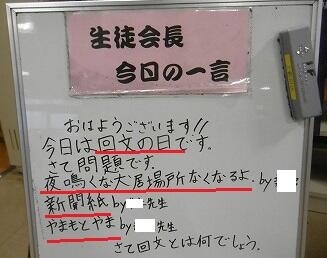 生徒会長
今日の一言
おはようございます!!
今日は回文の日です。
さて問題です。
夜鳴くな犬居場所なくなるよ. by
新聞紙 by 先生
やまもとやま by 先生
さて回文とは何でしょう。